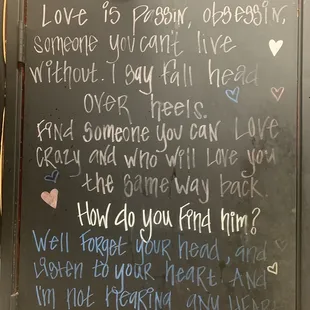 Love is Passin, obsessin,
someone you can't live
without. I say fall head
over heels.
Find someone you can love
crazy and who will love you
the same way back.
How do you find him?
Well forget your head, and
listen to your heart. And
I'm not hearing any heart